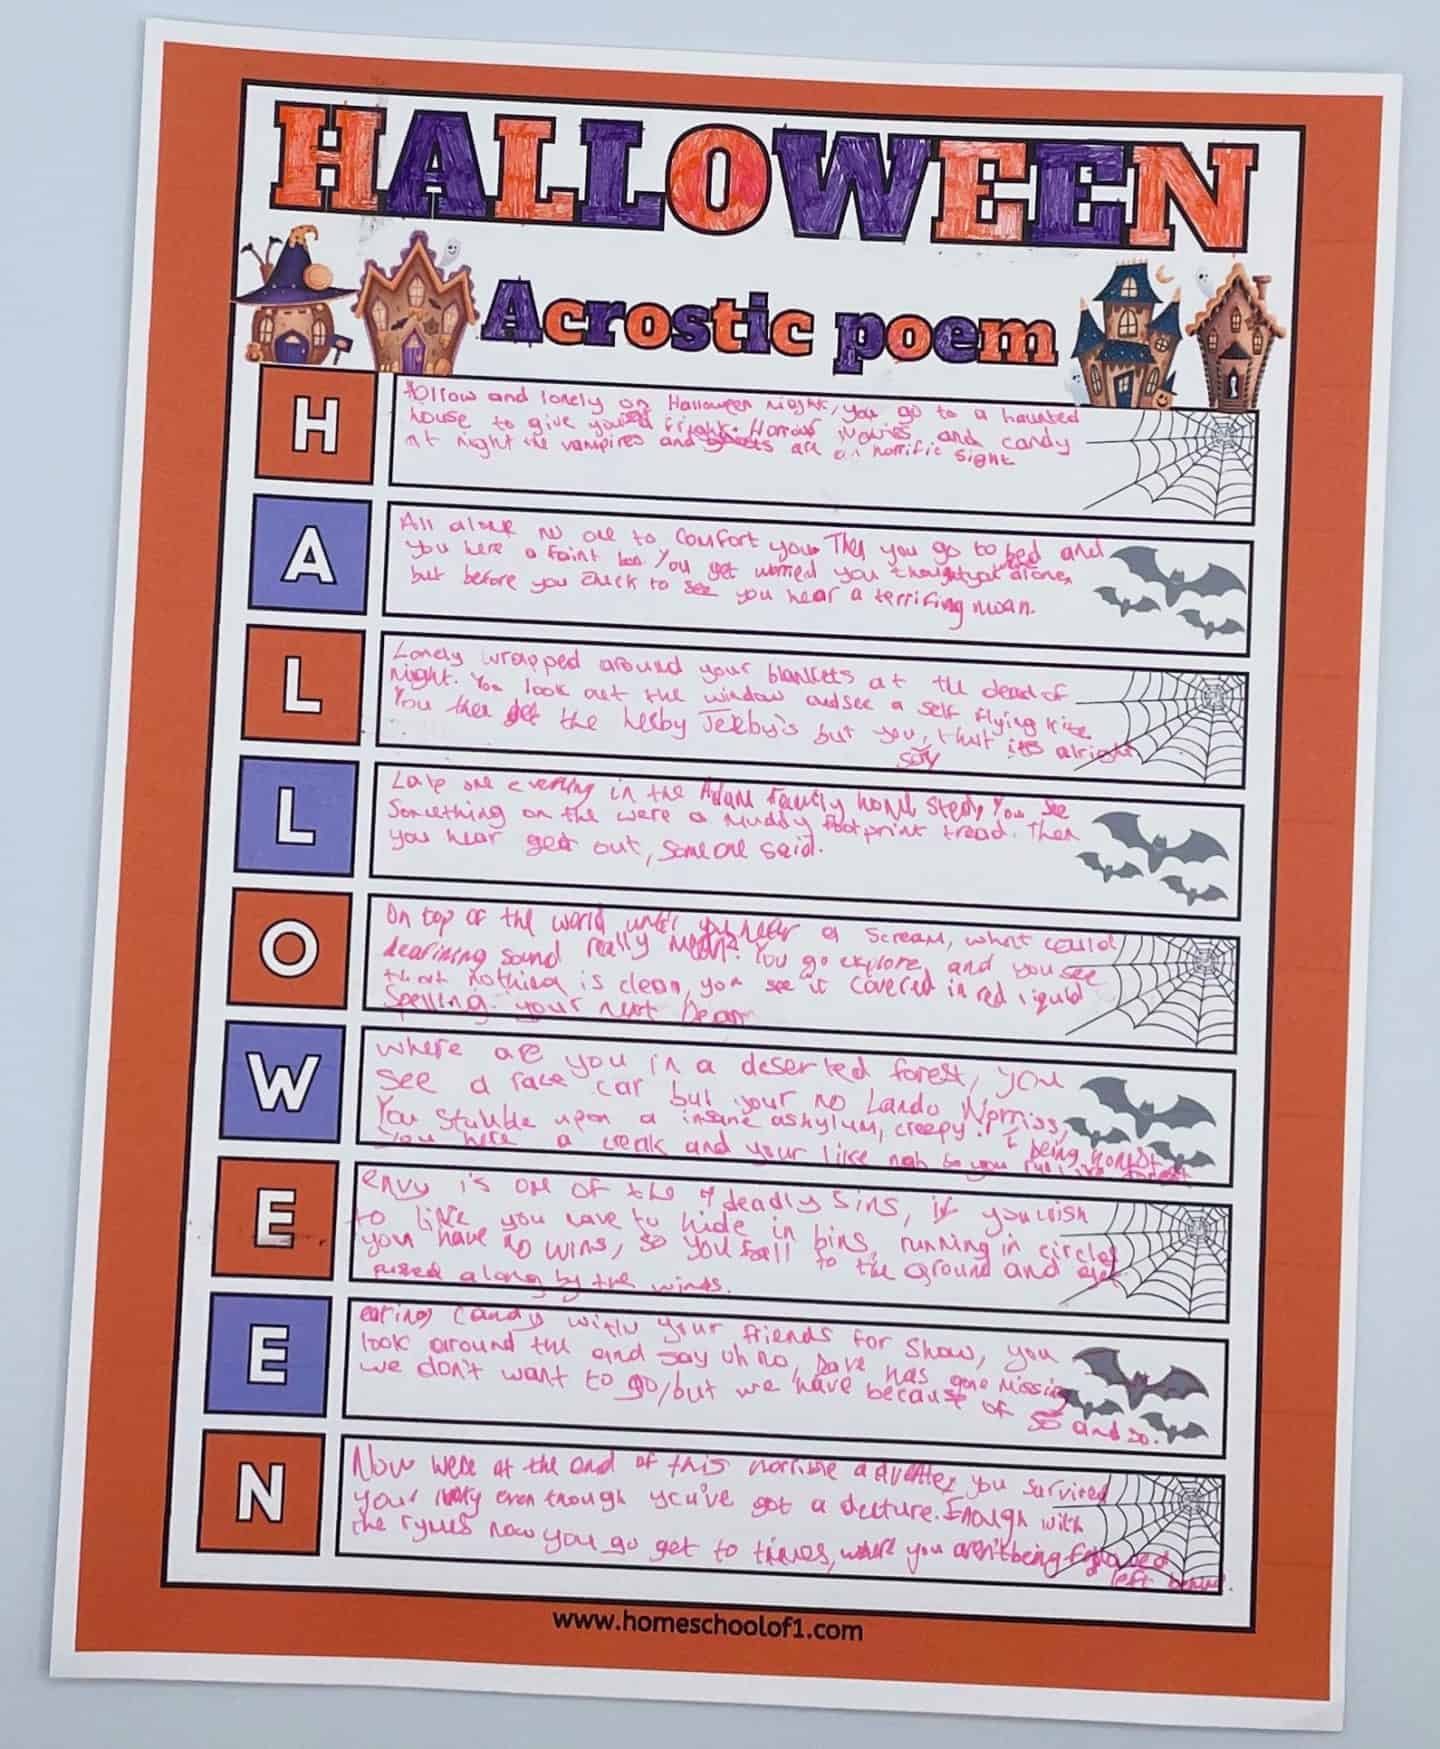 HALLOWEEN
Acrostic poem
H
Hollow and lonely on Halloween night, you go to a haunted
house to give you a fright. Horror Movies and candy
at night the vampires and ghosts are an horrific sight
A
All alone no one to comfort you. Then you go to bed and
you here a faint boo. You get worried you thought your alone,
but before you chuck to see you hear a terrifing moan.
L
Lonely wrapped around your blankets at the dead of
night. You look out the window and see a self flying kite
You then get the heeby Jeeby's but you, that its alright
say
L
Late one evening in the Adam family home stedy You see
Something on the were a Muddy footprint tread. Then
you hear get out, someone said.
O
On top of the world until you hear a scream, what could
deafining sound really mean? You go explore and you see
that nothing is clean, you see it covered in red liquid
Spelling your next
W
where are you in a deserted forest, you
see a race car but your no Lando Norriss,
You stubble upon a insane ashylum, creepy!
being honest
You here a creak and your like nah
E
envy is one of the 7 deadly sins, if you wish
to live you have to hide in bins, running in circles
you have no wins, so you fall to the ground and get
pushed along by the winds.
E
eating candy with your friends for show, you
look around the and say uh no, Dave has gone missing
we don't want to go, but we have because of
so and so.
N
Now were at the end of this horrible adventer you survived
your lucky even though you've got a Enough with
the rymes now you go get to times, where you aren't being followed
left
www.homeschoolof1.com